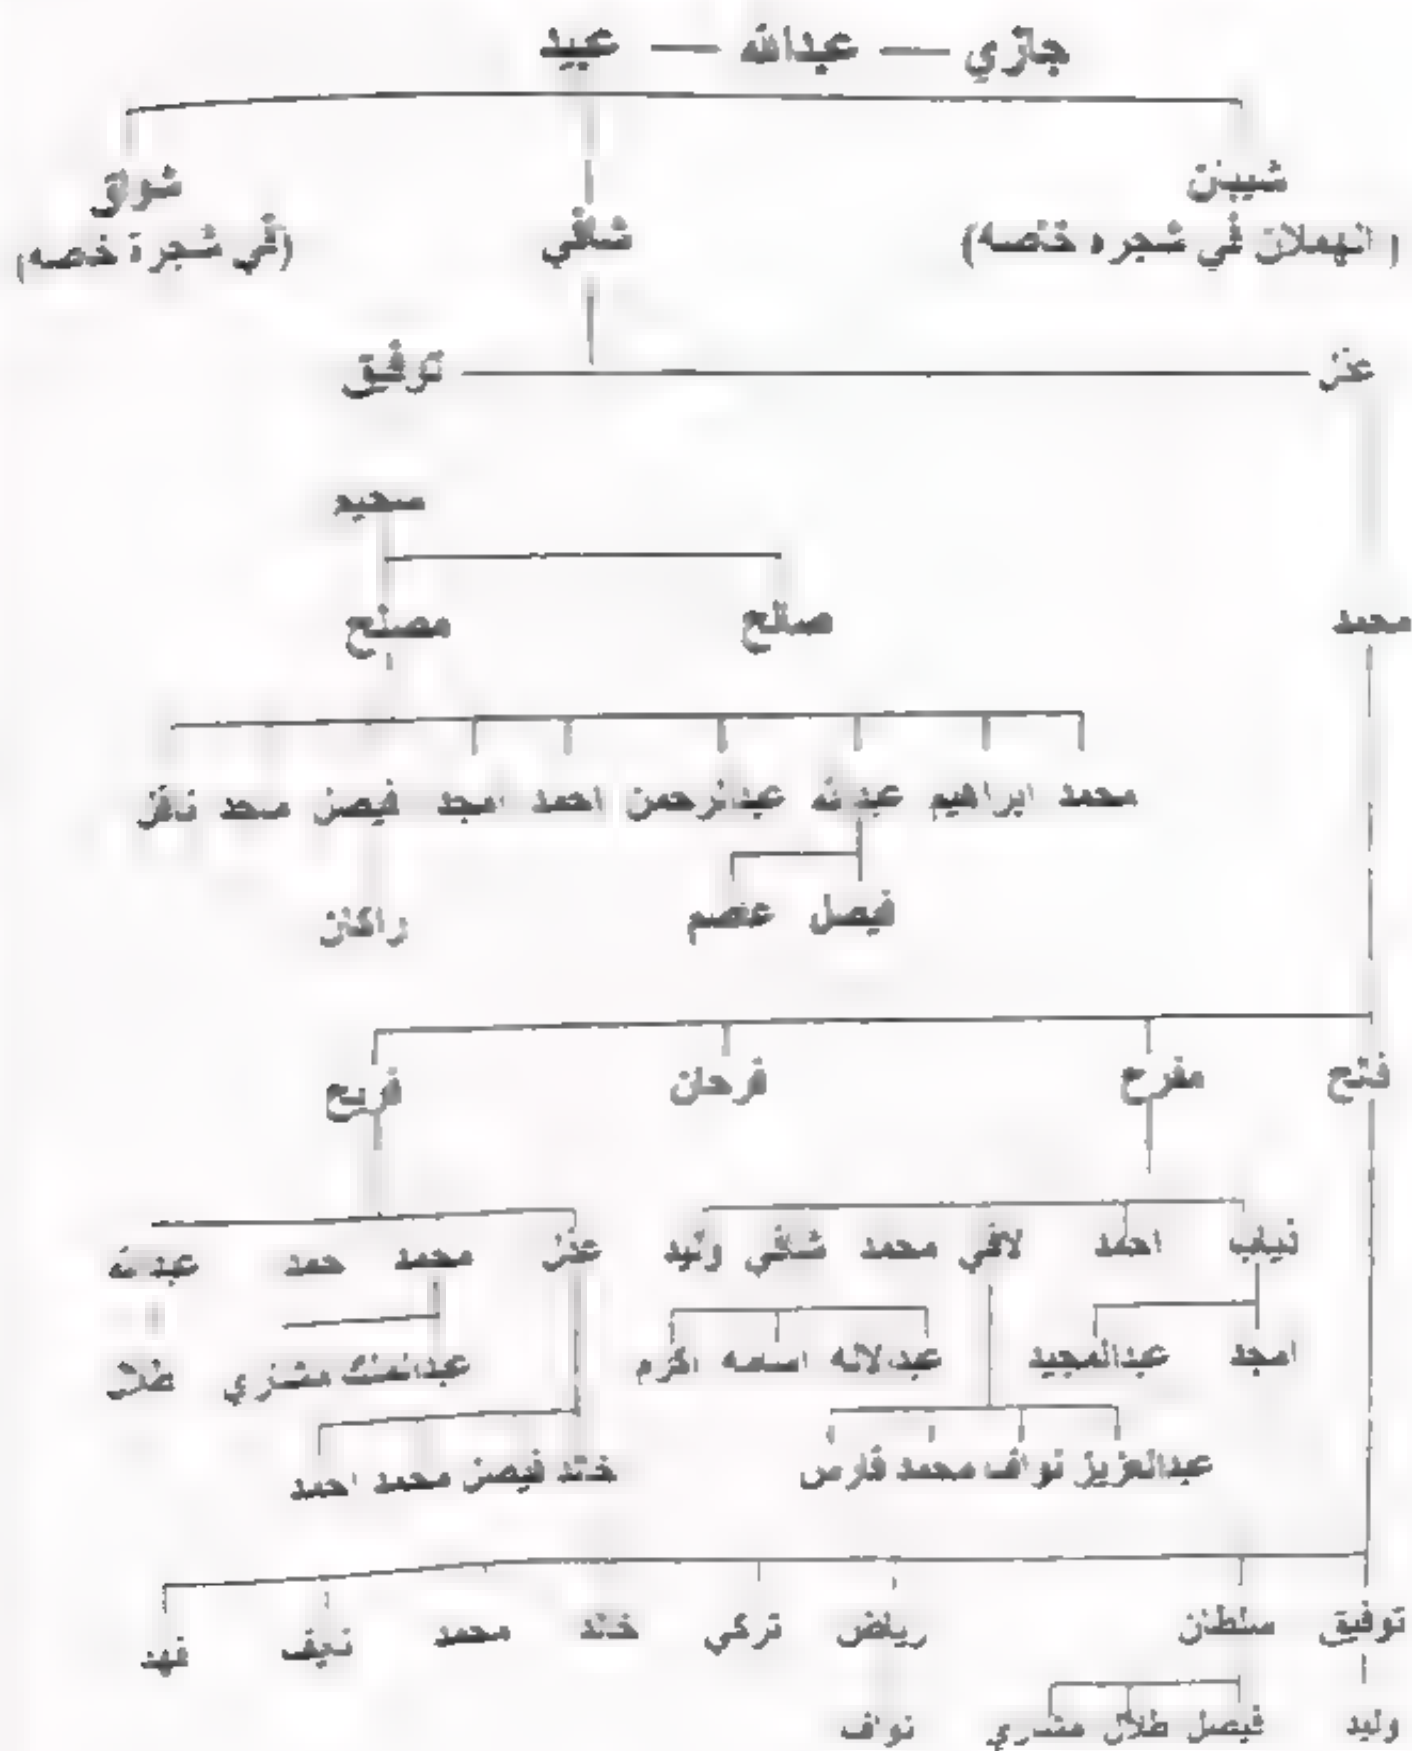 جازي — عبدالله — عبيد
شواق
شافي
(في شجرة خاصه)
(الهملان في شجره خاصه)
توفيق
سحيم
صالح
محمد
محمد ابراهيم عبدالله عبدالرحمن احمد امجد فيصل محمد نافل
فيصل عاصم
راكان
فتح مفرح فرحان فريح
احمد لافي محمد شافي وليد
محمد حمد عبدالله
امجد عبدالمجيد عبدالاله اسامه اكرم
عبدالملك مشاري طلال
عبدالعزيز نواف محمد فارس
خالد فيصل محمد احمد
توفيق سلطان رياض تركي خالد محمد نايف فهد
وليد فيصل طلال مشاري نواف